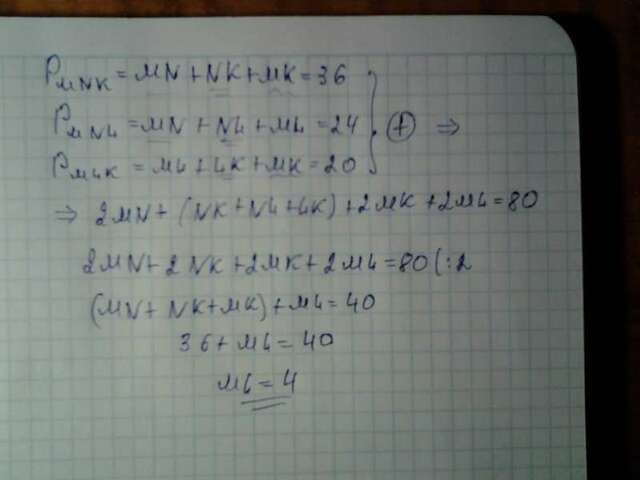 P_MNK = MN + NK + MK = 36
P_MN4 = MN + N4 + M4 = 24
P_M4K = M4 + 4K + MK = 20
} ⊕ ⇒
⇒ 2MN + (NK + N4 + 4K) + 2MK + 2M4 = 80
2MN + 2NK + 2MK + 2M4 = 80 (:2
(MN + NK + MK) + M4 = 40
36 + M4 = 40
M4 = 4